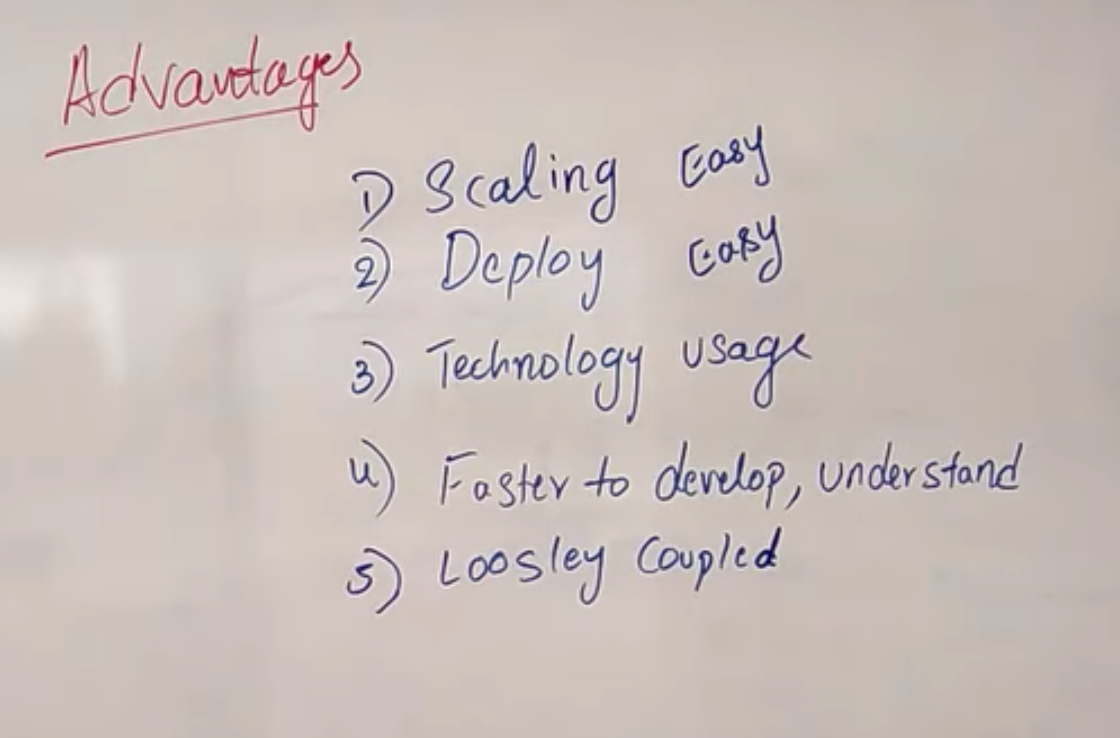 Advantages
1) Scaling Easy
2) Deploy Easy
3) Technology usage
4) Faster to develop, understand
5) Loosley Coupled